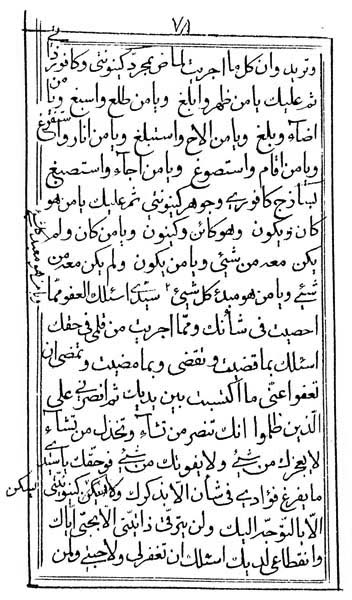 ۷۸
وتريد وان كل ما اجريت بامضاض بمجرد كينونتي وكافور ذ
ثم عليك يامن ظهر وابلغ ويامن طلع واسبغ ويامن
اضاء وبلغ ويامن الاح واستبلغ ويامن انار واستفرغ
ويامن اقام واستصوغ ويامن اجاء واستصبغ
كافوري وجوهر كينونتي ثم عليك يامن هو
كان ويكون وهو كائن وكينون ويامن كان ولم
يكن معه من شيئ ويامن يكون ولم يكن معه من
شيئ ويامن هو مبدء كل شيئ سيدي اسئلك العفو مما
احصيت في شأنك ومما اجريت من قلمي في حقك
اسئلك بما قضيت وتقضي وبما مضيت وتمضي ان
تعفوا عني ما اكتسبت بين يديك ثم انصرني على
الذين ظلموا انك تنصر من تشاء وتخذل من تشاء
لا يعجزك من شيئ ولا يفوتك من شيئ فوحقك يا سيدي
ما يفرغ فؤادي في شأن الا بذكرك ولا يسكن كينونتي
الا بالتوجه اليك ولن يترقى ذاتيتي الا بحبي اياك
وانقطاعي لديك اسئلك ان تغفر لي ولاحبتي ولمن